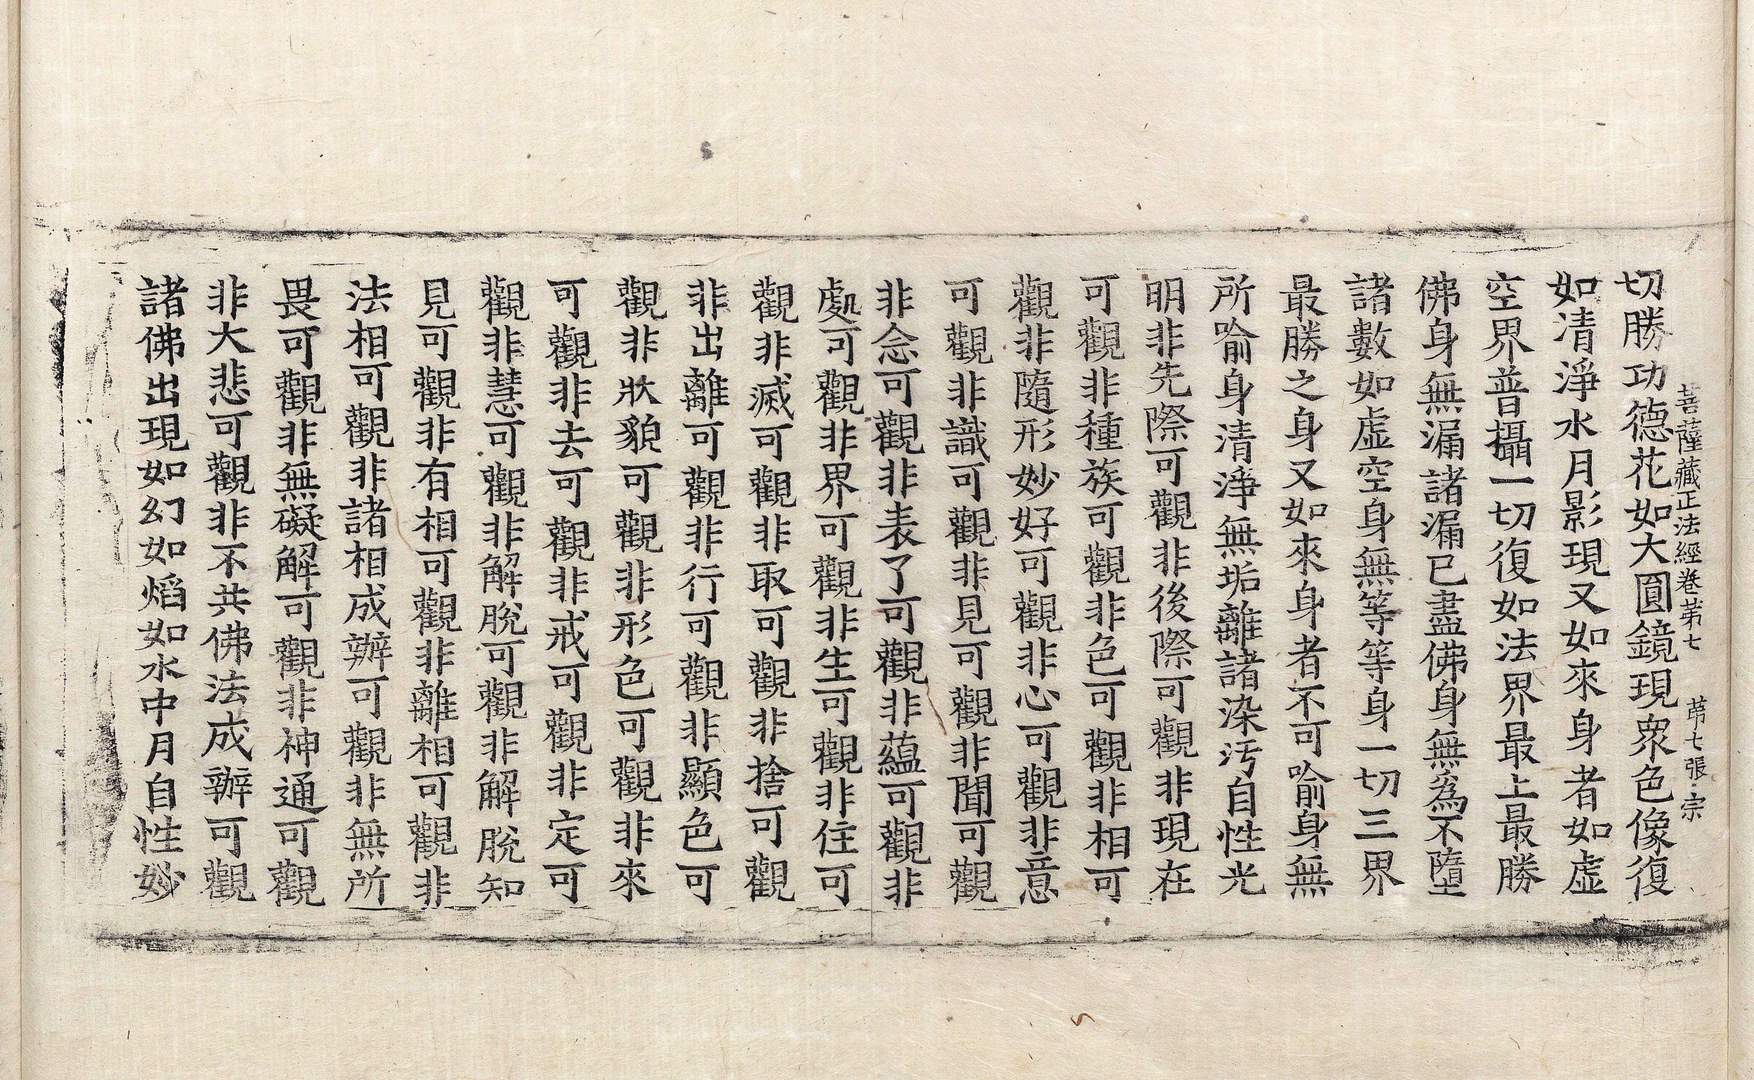 菩薩藏正法經卷苐七　苐七張　宗
切勝功德花如大圓鏡現衆色像復
如清淨水月影現又如來身者如虛
空界普攝一切復如法界最上最勝
佛身無漏諸漏已盡佛身無爲不墮
諸數如虛空身無等等身一切三界
最勝之身又如來身者不可喻身無
所喻身清淨無垢離諸染汚自性光
明非先際可觀非後際可觀非現在
可觀非種族可觀非色可觀非相可
觀非隨形妙好可觀非心可觀非意
可觀非識可觀非見可觀非聞可觀
非念可觀非表了可觀非蘊可觀非
處可觀非界可觀非生可觀非住可
觀非滅可觀非取可觀非捨可觀
非出離可觀非行可觀非顯色可
觀非狀貌可觀非形色可觀非來
可觀非去可觀非戒可觀非定可
觀非慧可觀非解脫可觀非解脫知
見可觀非有相可觀非離相可觀非
法相可觀非諸相成辦可觀非無所
畏可觀非無礙解可觀非神通可觀
非大悲可觀非不共佛法成辦可觀
諸佛出現如幻如焰如水中月自性妙